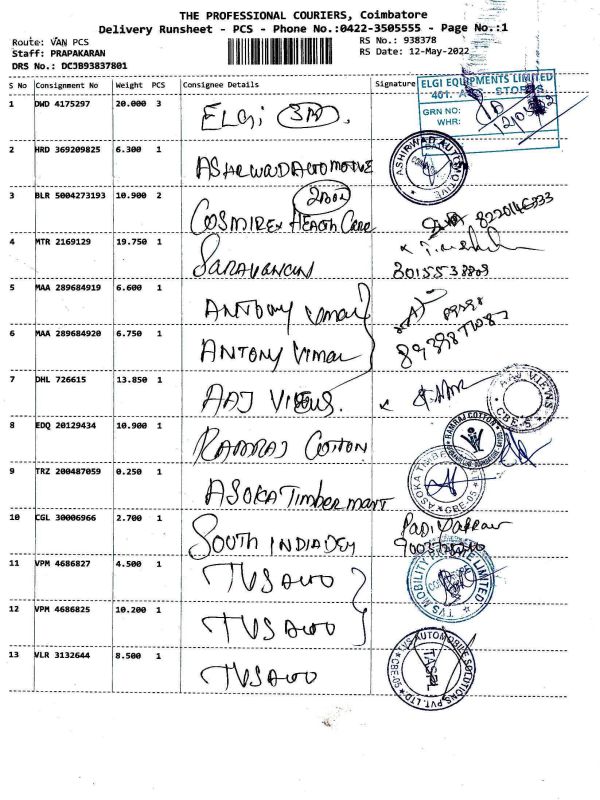 THE PROFESSIONAL COURIERS, Coimbatore
Delivery Runsheet - PCS - Phone No.:0422-3505555 - Page No.:1
Route: VAN PCS
RS No.: 938378
Staff: PRAPAKARAN
RS Date: 12-May-2022
DRS No.: DC3B93837801
S No Consignment No Weight PCS Consignee Details Signature
ELGI EQUIPMENTS LIMITED
STORES
GRN NO:
WHR:
1 DWD 4175297 20.000 3 ELGi
2 HRD 369209825 6.300 1 ASHRWAD AUTOMOTIVE
ASHIRWAD AUTOMOTIVE
3 BLR 5004273193 10.900 2 COSMIREX HEALTH Care
4 MTR 2169129 19.750 1 SARAVANAN
5 MAA 289684919 6.600 1 ANTONY Vimal
6 MAA 289684920 6.750 1 ANTONY Vimal
7 DHL 726615 13.850 1 AAJ VIEUS.
VIEWS
CBE-5
8 EDQ 20129434 10.900 1 RAMRAJ COTTON
RAMRAJ COTTON
9 TRZ 200487059 0.250 1 ASOKA Timber mart
ASOKA TIMBER
CBE-05
10 CGL 30006966 2.700 1 SOUTH INDIA
11 VPM 4686827 4.500 1 TVS AUTO
TVS MOBILITY PRIVATE LIMITED
12 VPM 4686825 10.200 1 TVS AUTO
13 VLR 3132644 8.500 1 TVS AUTO
TVS AUTOMOBILE SOLUTIONS PVT. LTD
CBE-05
TASPL